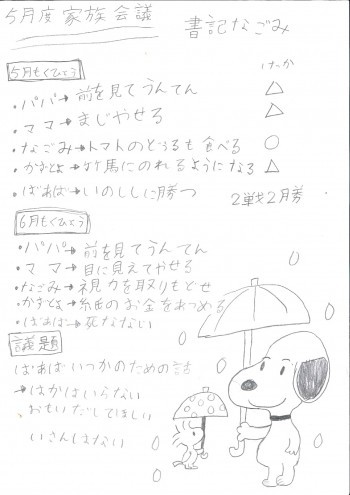 5月度家族会議
書記なごみ
5月もくひょう けっか
・パパ→前を見てうんてん △
・ママ→まじやせる △
・なごみ→トマトのどぅるも食べる ○
・かずとよ→竹馬にのれるようになる △
・ばあば→いのししに勝つ 2戦2月勝
6月もくひょう
・パパ→前を見てうんてん
・ママ→目に見えてやせる
・なごみ→視力を取りもどせ
・かずとよ→紙のお金をあつめる
・ばあば→死なない
議題
ばあばいつかのための話
→はかはいらない
、おもいだしてほしい
いさんはない